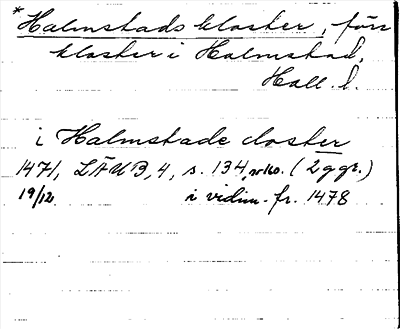 *Halmstads kloster, förr
kloster i Halmstad,
Hall. l.
i Halmstade closter
1471, LÄUB, 4, s. 134, nr 160. (2 ggr.)
19/12 i vidim. fr. 1478